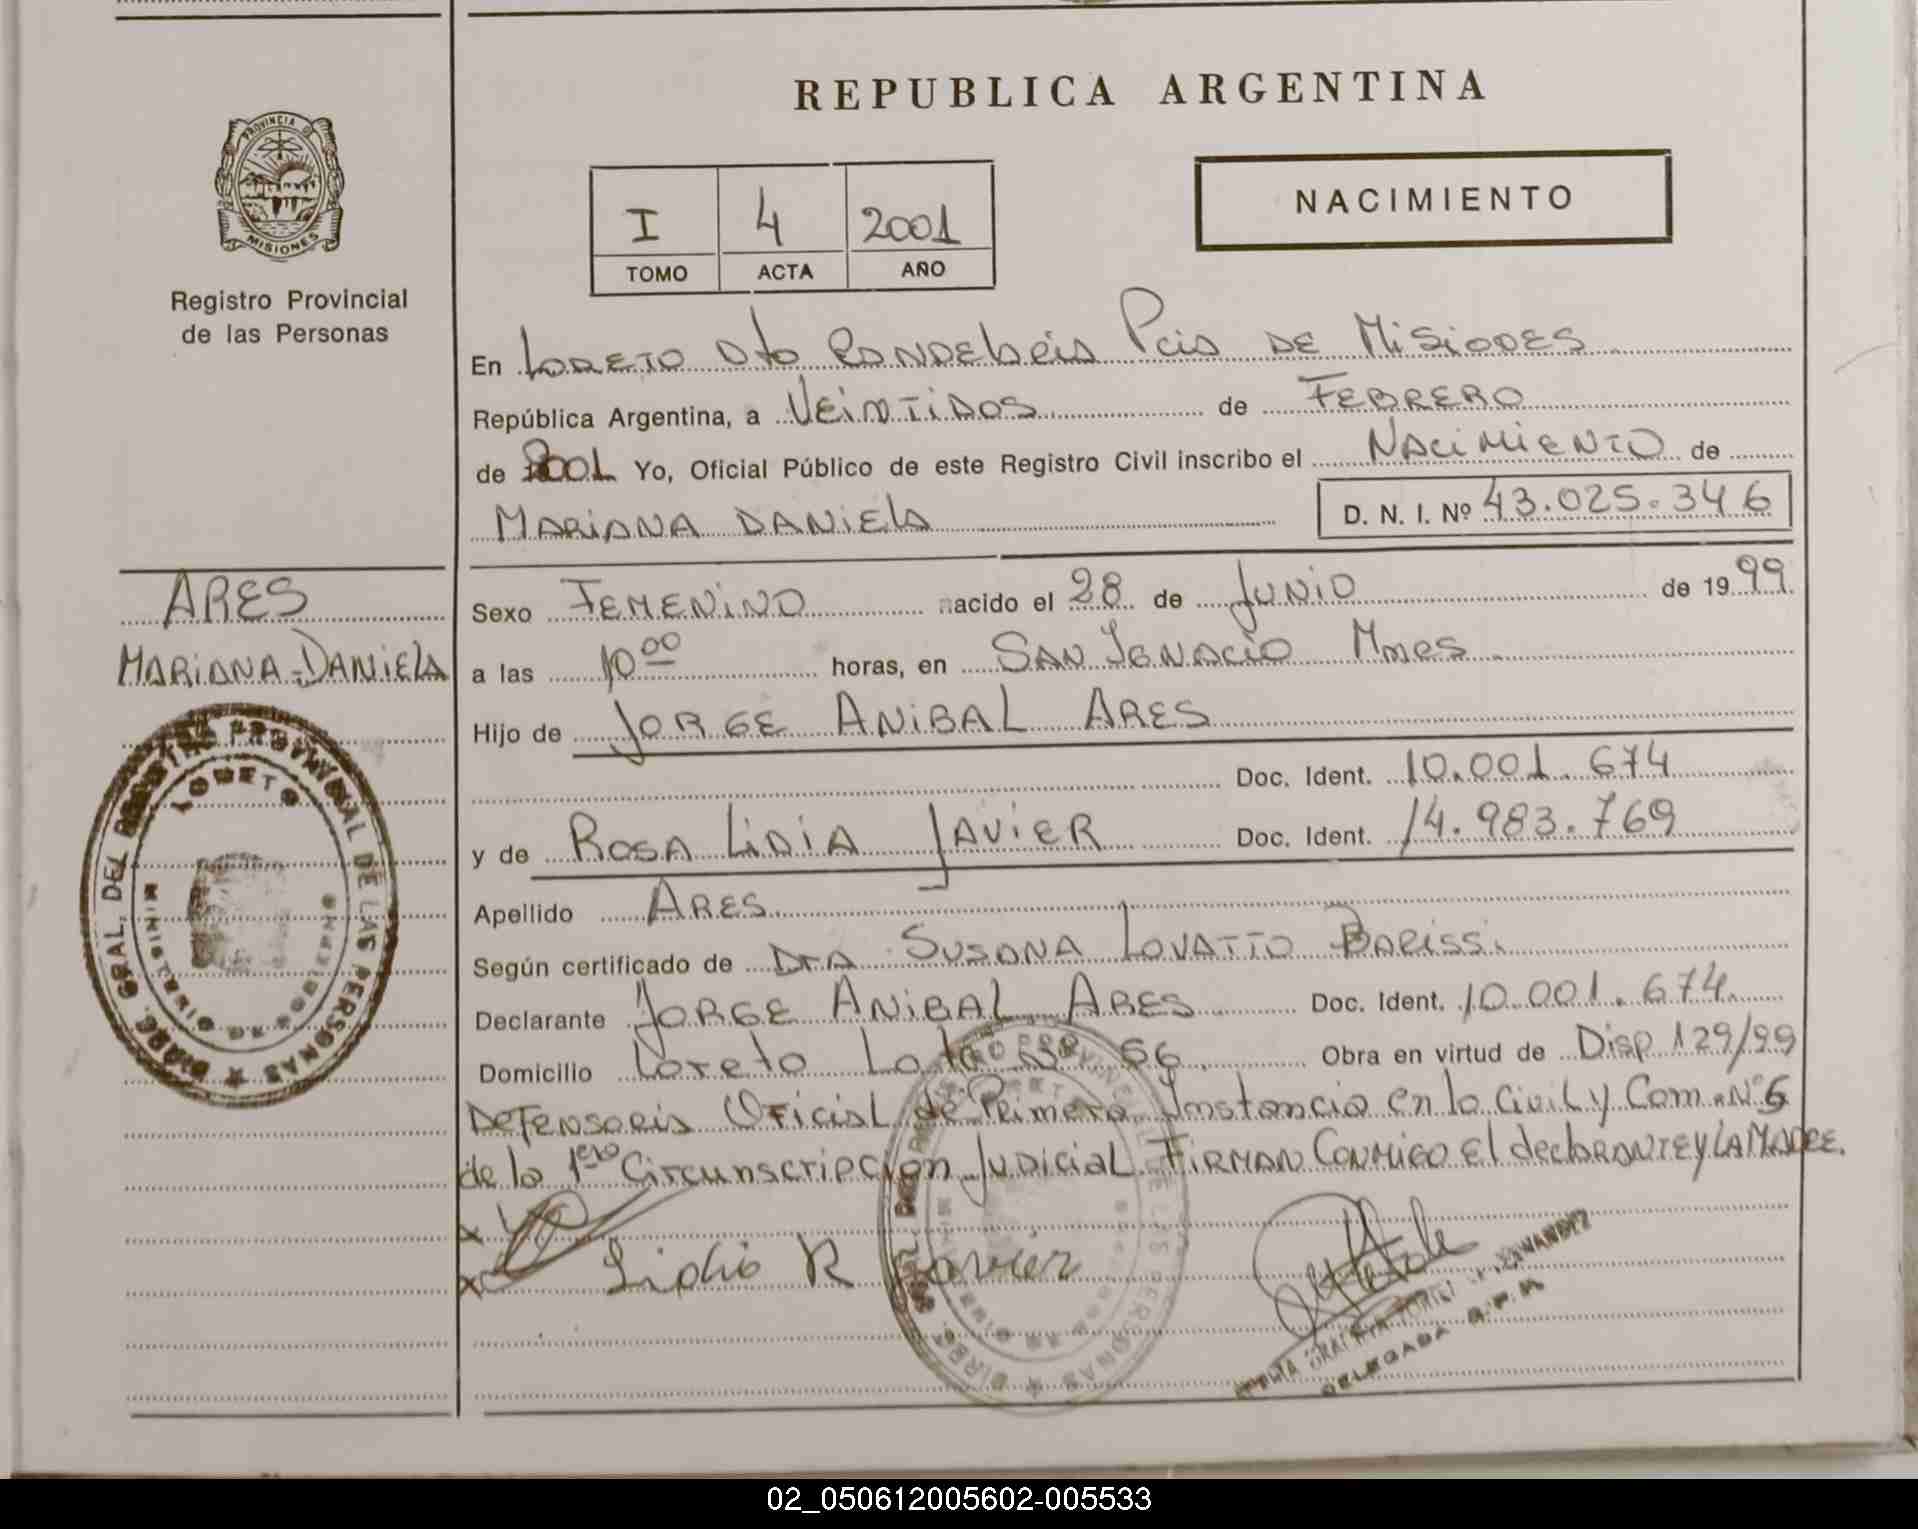 REPUBLICA ARGENTINA
PROVINCIA DE
MISIONES
Registro Provincial
de las Personas
I 4 2001
TOMO ACTA AÑO
NACIMIENTO
En LORETO Dto CANDELARIA Pcia DE MISIONES
República Argentina, a VEINTIDOS de FEBRERO
de 2001 Yo, Oficial Público de este Registro Civil inscribo el NACIMIENTO de
MARIANA DANIELA D. N. I. Nº 43.025.346
ARES
MARIANA-DANIELA
Sexo FEMENINO nacido el 28 de JUNIO de 1999
a las 10 00 horas, en SAN IGNACIO Mnes
Hijo de JORGE ANIBAL ARES
Doc. Ident. 10.001.674
y de ROSA LIDIA JAVIER Doc. Ident. 14.983.769
Apellido ARES
Según certificado de DRA SUSANA LOVATTO
Declarante JORGE ANIBAL ARES Doc. Ident. 10.001.674
Domicilio Loreto 66 Obra en virtud de Disp 129/99
DEFENSORIA OFICIAL de Primera Instancia en lo Civil y Com. Nº 5
de la 1era Circunscripción JUDICIAL FIRMAN CONMIGO El declARANTE y LA MADRE.
Lidia R Javier
DIREC. GRAL. DEL REGISTRO PROVINCIAL DE LAS PERSONAS
LORETO
MISIONES
DELEGADA R.P.P.
02_050612005602-005533